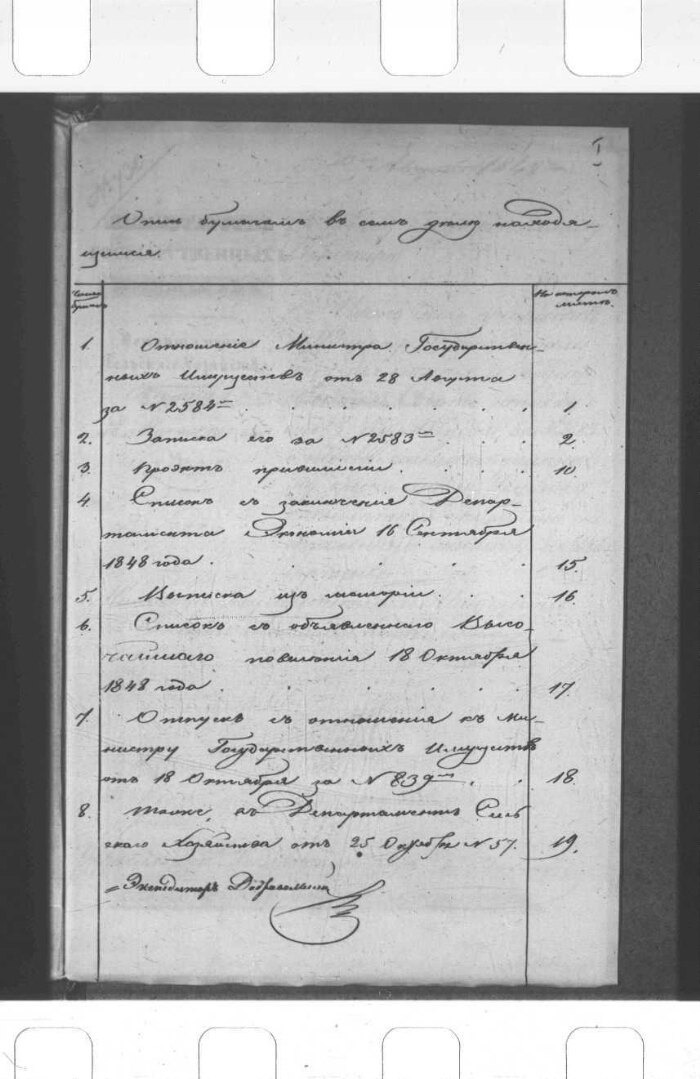 I
Опись бумагамъ въ семъ дѣлѣ находя-
щимся
Число бумагъ
На которомъ листѣ.
1. Отношеніе Министра Государствен-
ныхъ Имуществъ отъ 28 Августа
за № 2584м. 1.
2. Записка его за № 2583м 2.
3. Проэктъ привиллегіи. 10
4. Списокъ съ заключенія Депар-
тамента Экономіи 16 Сентября
1848 года. 15.
5. Выписка изъ меморіи. 16.
6. Списокъ съ объявленнаго Высо-
чайшаго повелѣнія 18 Октября
1848 года. 17.
7. Отпускъ съ отношенія къ Ми-
нистру Государственныхъ Имуществъ
отъ 18 Октября за № 839м. 18.
8. тоже, въ Департаментъ Сель
скаго Хозяйства отъ 25 Октября № 57. 19.
Экспедиторъ